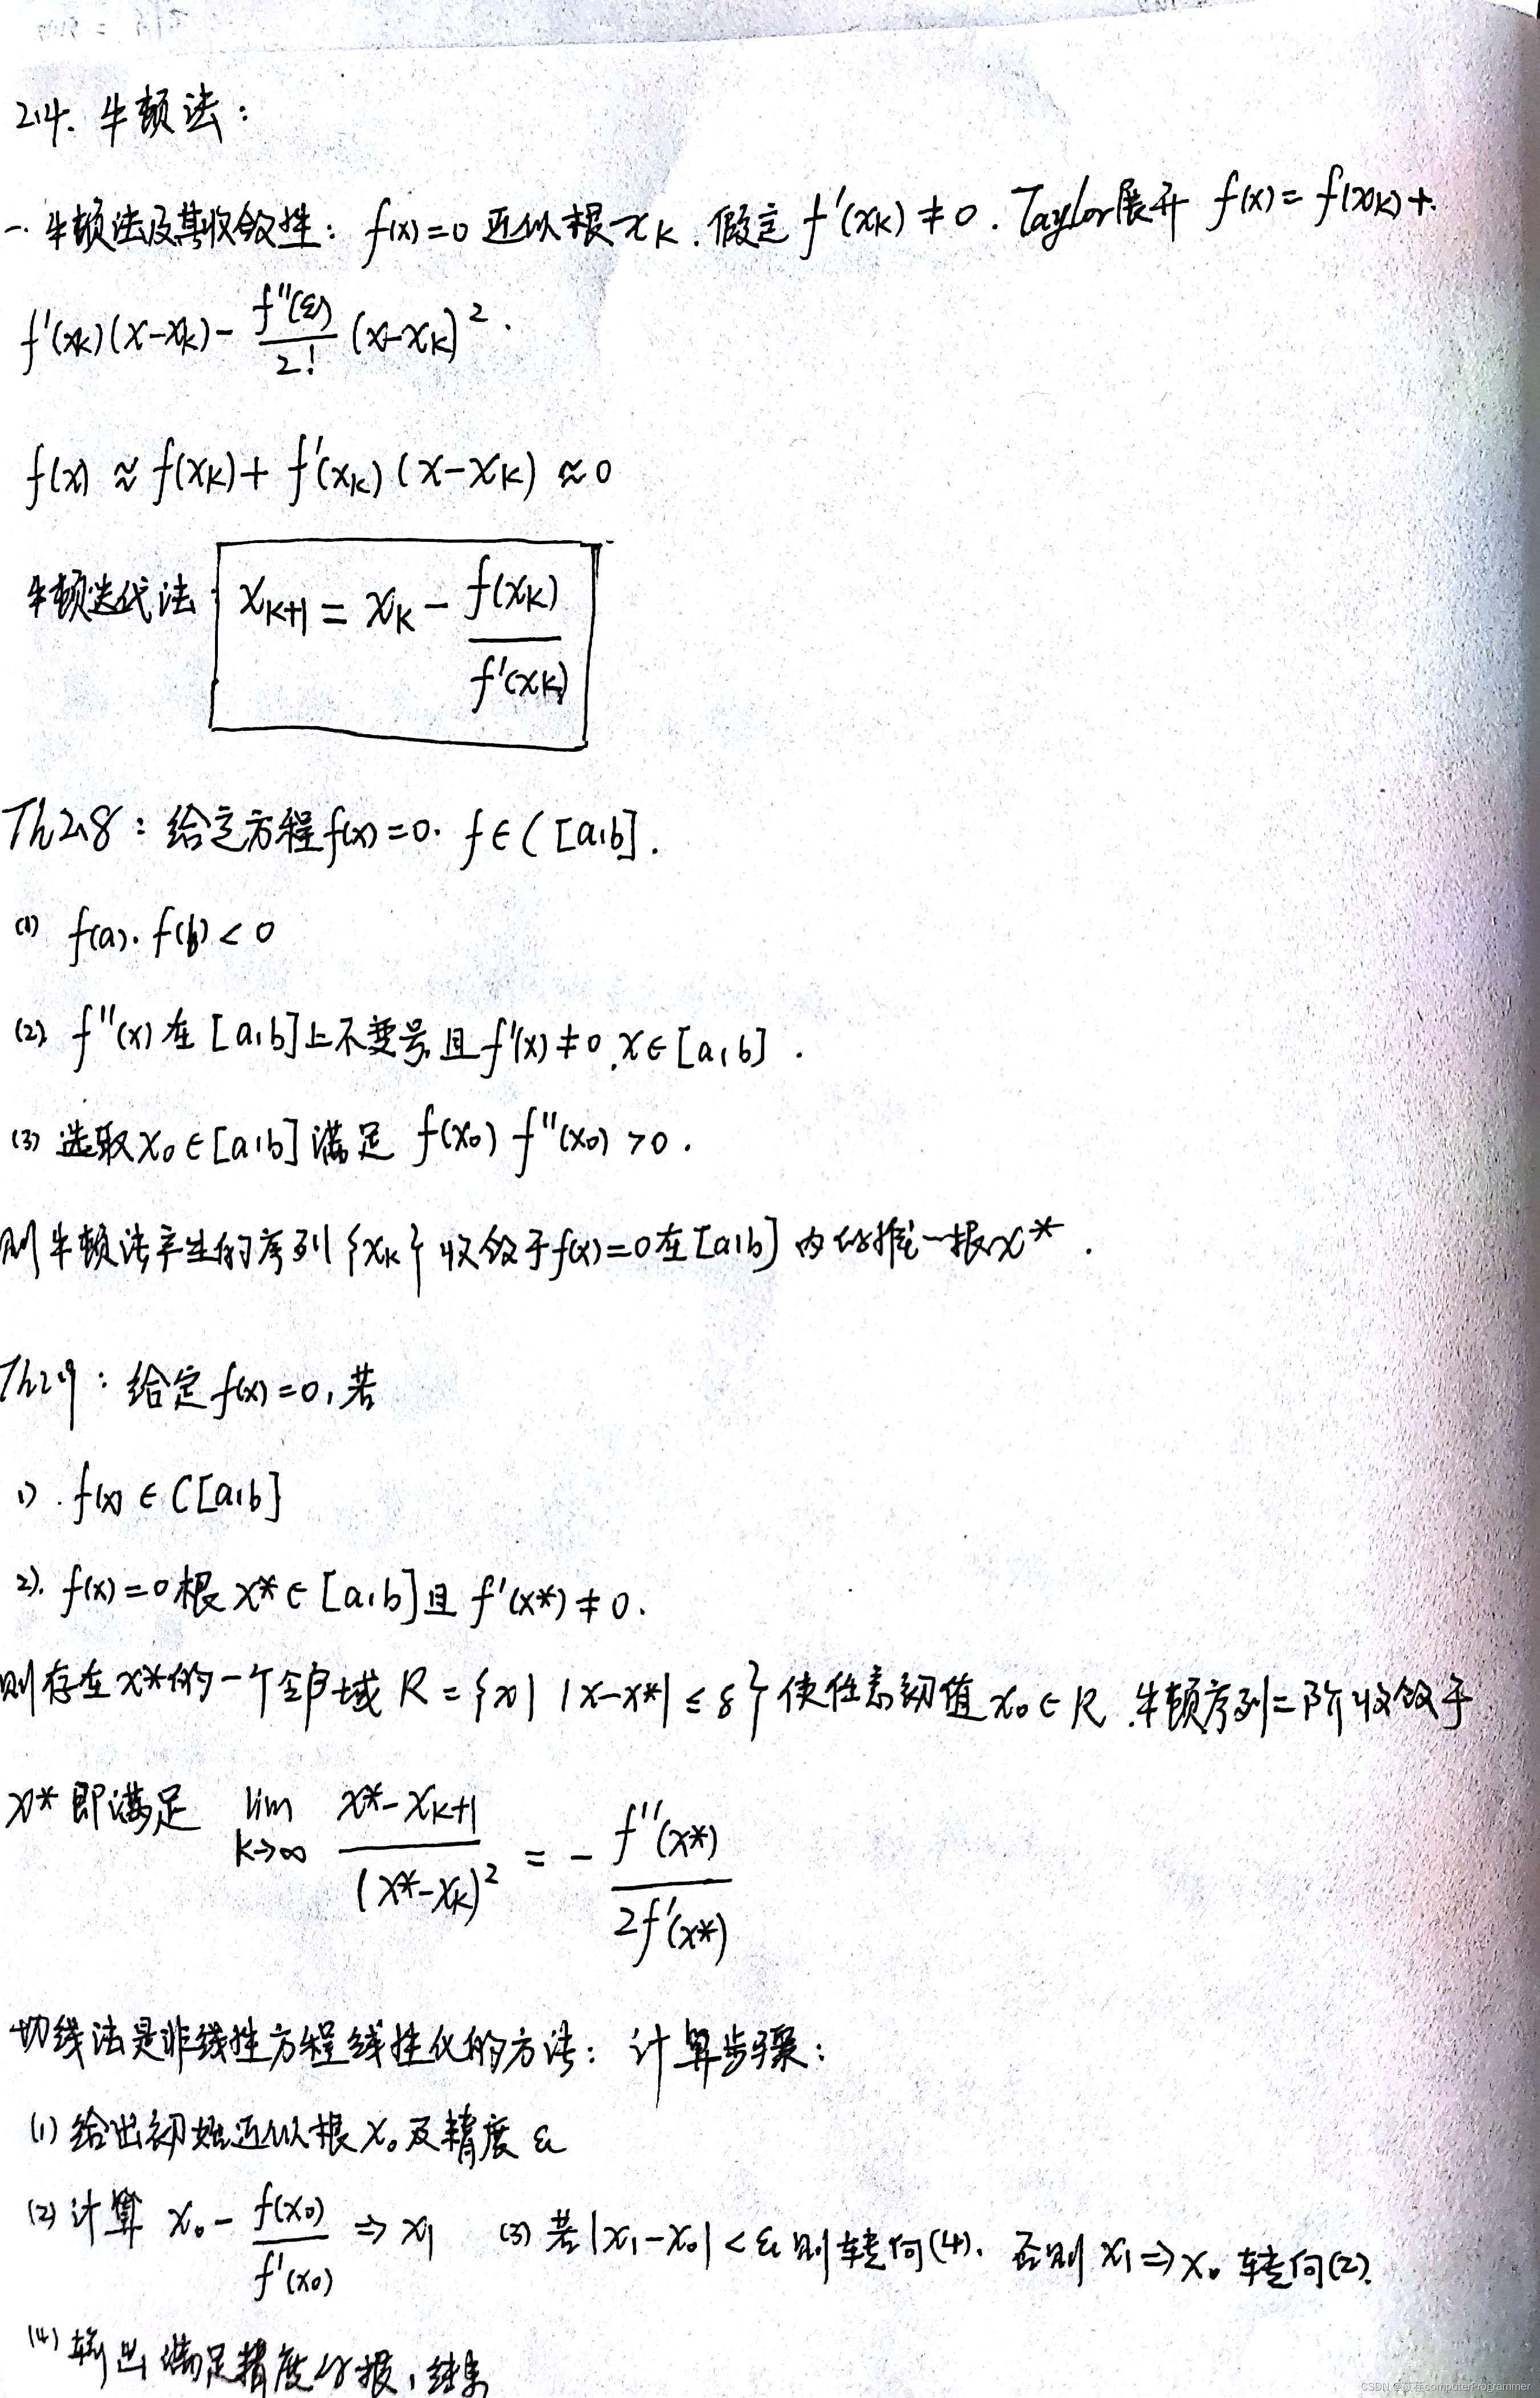 2.4. 牛顿法:
一. 牛顿法及其收敛性: f(x)=0 近似根 xₖ. 假定 f'(xₖ) ≠ 0. Taylor展开 f(x) = f(xₖ) +
f'(xₖ)(x-xₖ) - f''(ξ)/2! (x-xₖ)².
f(x) ≈ f(xₖ) + f'(xₖ)(x-xₖ) ≈ 0
牛顿迭代法: xₖ₊₁ = xₖ - f(xₖ)/f'(xₖ)
Th2.8: 给定方程f(x)=0. f∈C[a,b].
(1) f(a)·f(b)<0
(2) f''(x)在[a,b]上不变号,且f'(x)≠0,x∈[a,b].
(3) 选取x₀∈[a,b]满足 f(x₀)f''(x₀)>0.
则牛顿法产生的序列{xₖ}收敛于f(x)=0在[a,b]内的唯一根x*.
Th2.9: 给定f(x)=0,若
1). f(x)∈C[a,b]
2). f(x)=0根x*∈[a,b]且f'(x*)≠0.
则存在x*的一个邻域 R={x| |x-x*|≤δ}使任意初值x₀∈R,牛顿序列二阶收敛于
x* 即满足 lim k→∞ (x*-xₖ₊₁)/(x*-xₖ)² = - f''(x*)/2f'(x*)
切线法是非线性方程线性化的方法: 计算步骤:
(1) 给出初始近似根x₀及精度ε
(2) 计算 x₀ - f(x₀)/f'(x₀) ⇒ x₁ (3) 若|x₁-x₀|<ε则转向(4). 否则 x₁⇒x₀ 转向(2).
(4) 输出满足精度的根,结束
CSDN @
computerProgrammer